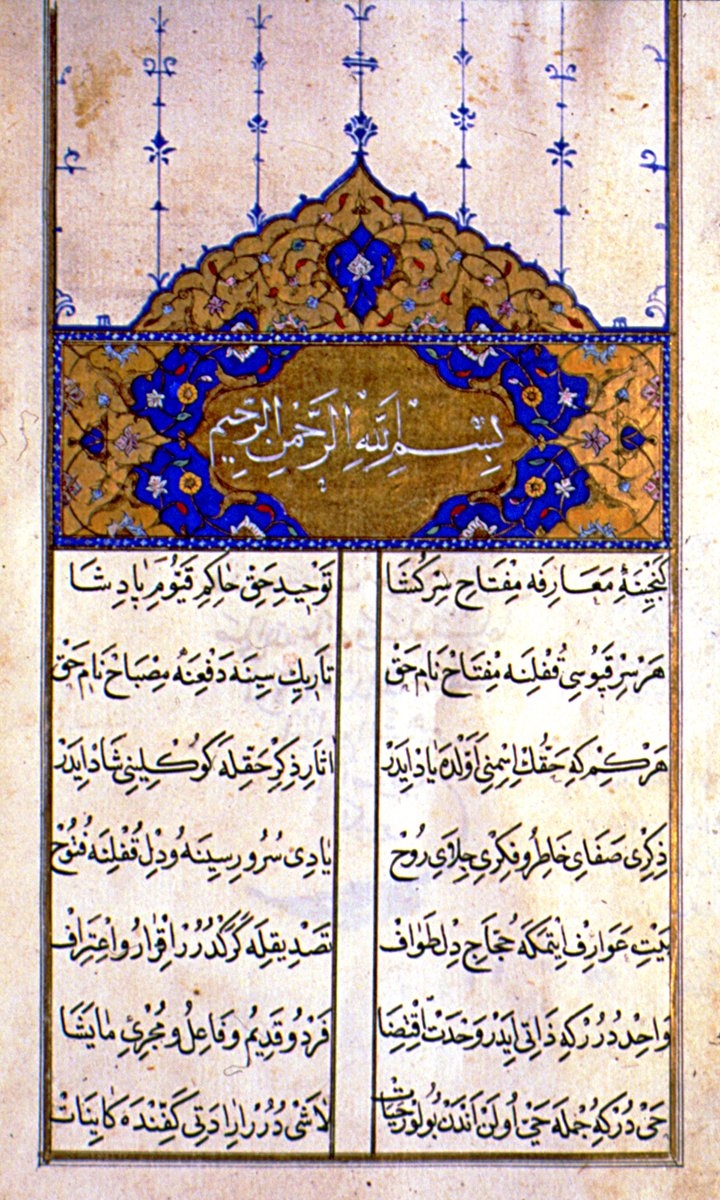 بِسْمِ اللّٰهِ الرَّحْمٰنِ الرَّحِيمِ
كَنْجِينَهٔ مَعَارِفه مِفْتَاحِ سِرْ كُشَا تَوْحِيدِ حَقِّ حَاكِمِ قَيُّومِ پَادِشَا
هَرْ سِرْ قَپُوسِی قُفْلِنَه مِفْتَاحْ نَامِ حَقْ تَارِيكِ سِينَه دَفْعِنَه مِصْبَاحْ نَامِ حَقْ
هَرْ كِمْ كِه حَقُّكْ اِسْمِنِی اَوَّلْدَه يَادْ اِيدَرْ اٰثَارِ ذِكْرِ حَقْلَه كُوكُلِينِی شَادْ اِيدَرْ
ذِكْرِی صَفَایِ خَاطِرُ و فِكْرِی جِلَایِ رُوحْ يَادِی سُرُورِ سِينَه وُ دِلْ قُفْلِنَه فُتُوحْ
بَيْتِ عَوَارِفْ اِيتْمَكَه حُجَّاجِ دِلْ طَوَافْ تَصْدِيقِلَه كَرَكْدُرُرْ اِقْرَارُ و اِعْتِرَافْ
وَاحِدْ دُرُرْ كِه ذَاتِی اِيدَرْ وَحْدَتْ اِقْتِضَا فَرْدُ و قَدِيمُ و فَاعِلُ و مُجْرِیِٔ مَا يَشَا
حَیْ دُرْ كِه جُمْلَه حَیْ اُولَنْ اَنْدَنْ بُولُورْ حَيَاتْ لَا شَیْ دُرُرْ اِرَادَتِی كَفِّنْدَه كَايِنَاتْ